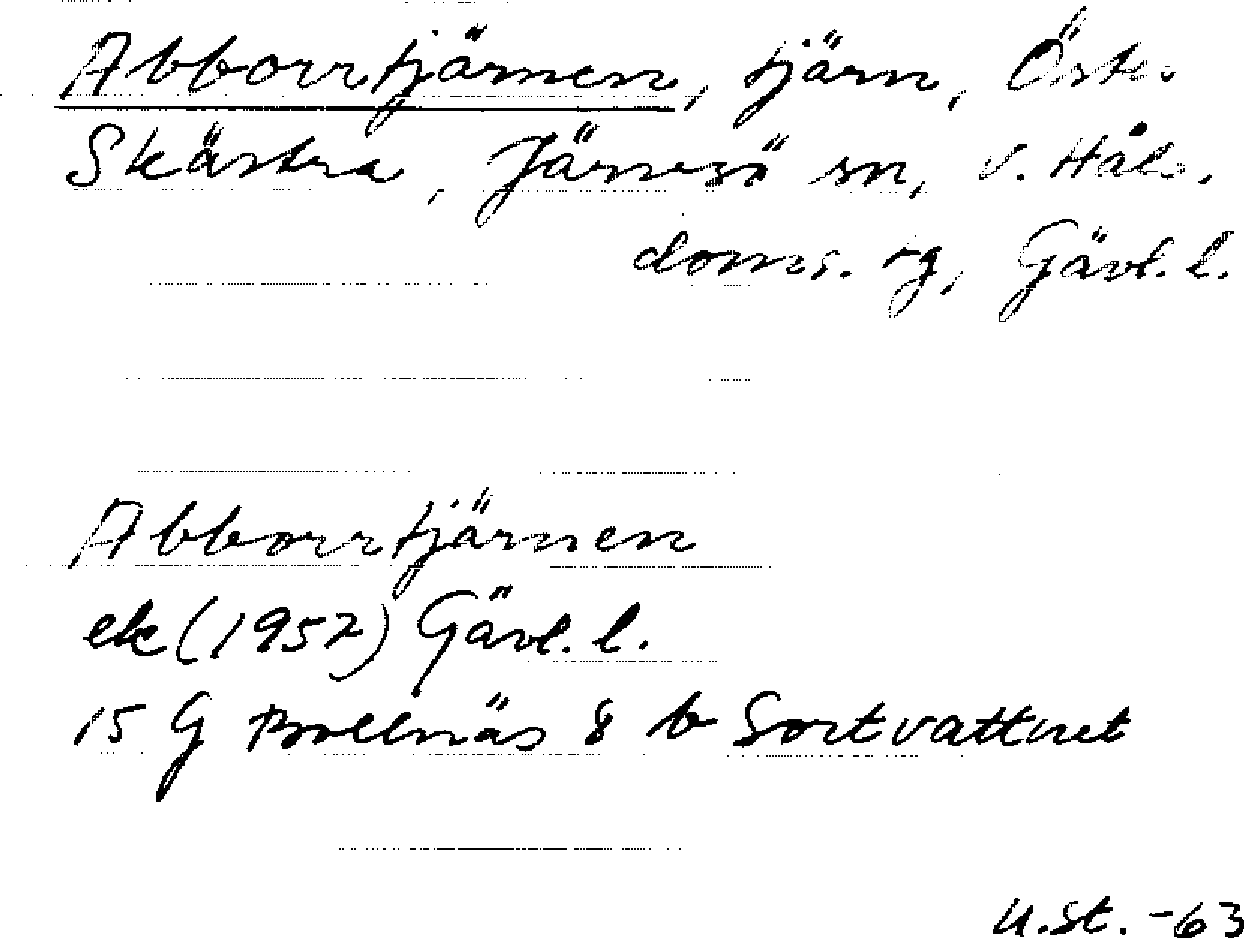 Abborrtjärnen, tjärn, Öster
Skästra, Järvsö sn, V. Häls.
doms. tg, Gävl. l.
Abborrtjärnen
ek (1957) Gävl. l.
15 G Bollnäs 8 b Sortvattnet
U.St. -63